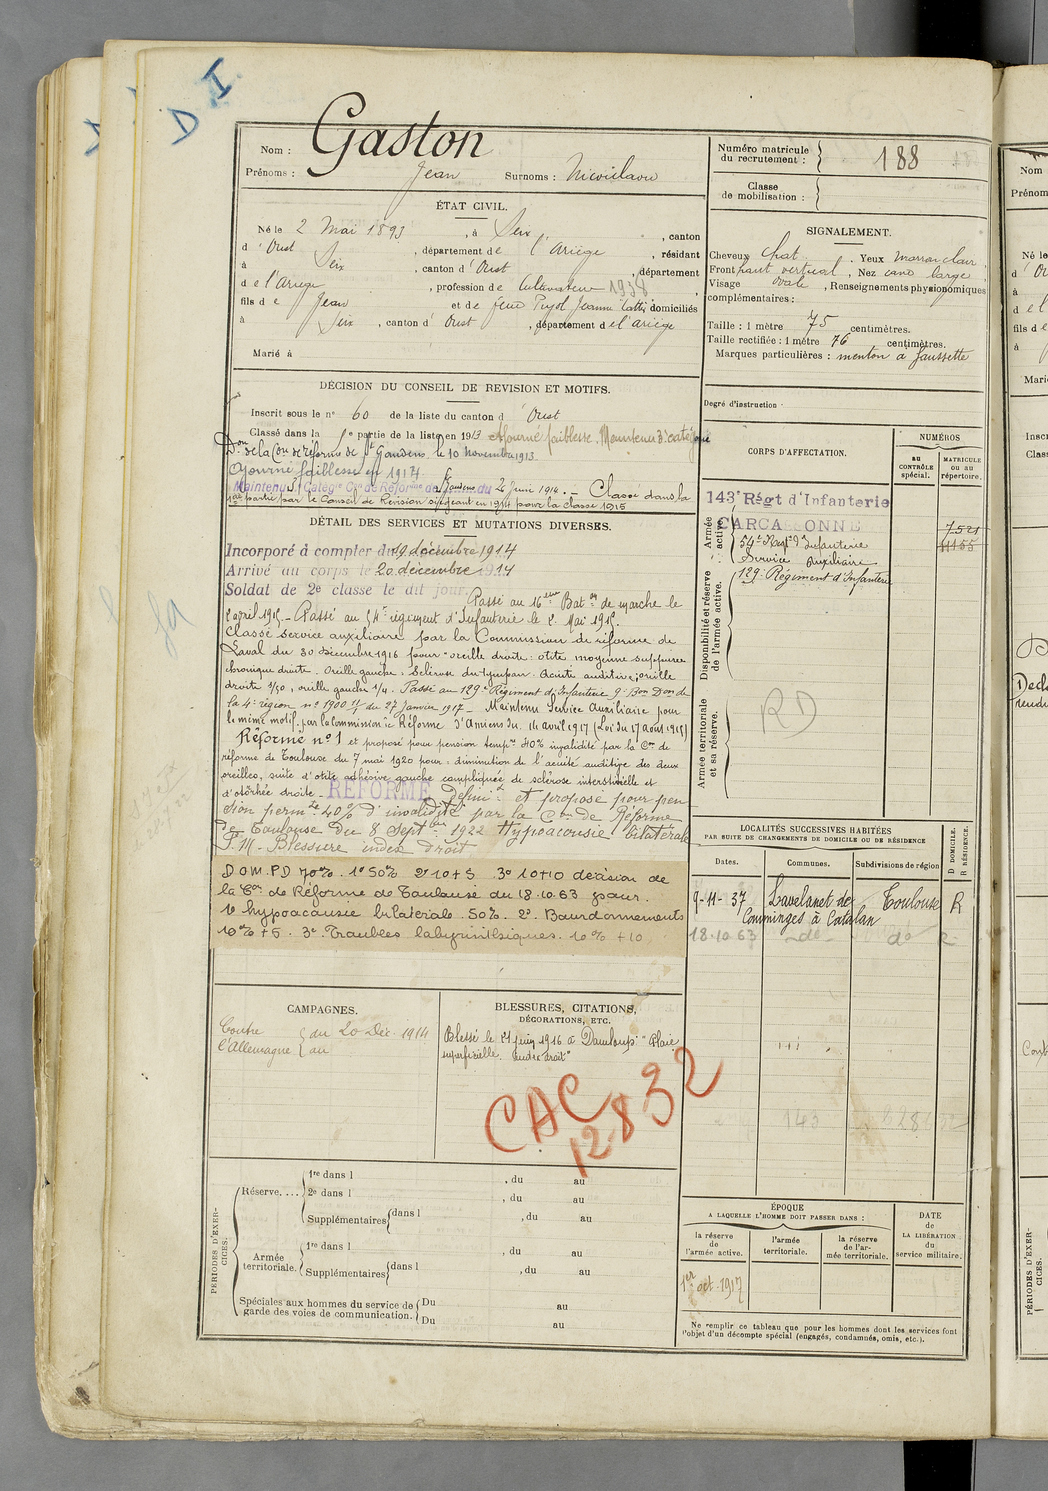 D I
Nom : Gaston
Prénoms : Jean Surnoms : Nicoulaou
Numéro matricule du recrutement : 188
Classe de mobilisation :
ÉTAT CIVIL.
Né le 2 Mai 1893, à Seix, canton
d'Oust, département de l'Ariège, résidant
à Seix, canton d'Oust, département
de l'Ariège, profession de Cultivateur 1938
fils de Jean et de feue Pujol Jeanne domiciliés
à Seix, canton d'Oust, département de l'Ariège
Marié à
SIGNALEMENT.
Cheveux chat. Yeux marron clair
Front haut vertical, Nez large
Visage ovale, Renseignements physionomiques
complémentaires :
Taille : 1 mètre 75 centimètres.
Taille rectifiée : 1 mètre 76 centimètres.
Marques particulières : menton à faussette
Degré d'instruction
DÉCISION DU CONSEIL DE REVISION ET MOTIFS.
Inscrit sous le n° 60 de la liste du canton d'Oust
Classé dans la 5e partie de la liste en 1913 Ajourné faiblesse. Maintenu 3e catégorie
Don de la Con de réforme de St Gaudens le 10 novembre 1913.
Ajourné faiblesse en 1914
Maintenu Catég Con de Réforme de St Gaudens du 2 Juin 1914. - Classé dans la
1ère partie par le Conseil de Revision siégeant en 1914 pour la classe 1915
DÉTAIL DES SERVICES ET MUTATIONS DIVERSES.
Incorporé à compter du 19 décembre 1914
Arrivé au corps le 20 décembre 1914
Soldat de 2e classe le dit jour.
Passé au 16ème Baton de marche le
2 avril 1915. - Passé au 54e régiment d'Infanterie le 2 Mai 1915.
Classé service auxiliaire par la Commission de réforme de
Laval du 30 décembre 1916 pour "oreille droite : otite moyenne suppurée
chronique droite. Oreille gauche : Sclérose du tympan. Acuité auditive : oreille
droite 1/50, oreille gauche 1/4. Passé au 129e Régiment d'Infanterie 9e Bon Don de
la 4e région n° 1900 du 27 Janvier 1917 - Maintenu Service Auxiliaire pour
le même motif par la Commission de Réforme d'Amiens du 14 avril 1917 (Loi du 17 août 1915)
Réformé n° 1 et proposé pour pension tempre 40% invalidité par la Con de
réforme de Toulouse du 7 mai 1920 pour : diminution de l'acuité auditive des deux
oreilles, suite d'otite adhésive gauche compliquée de sclérose interstitielle et
d'otorhée droite - RÉFORMÉ Définif et proposé pour pen
sion permte 40% d'invalidité par la Con de Réforme
de Toulouse du 8 Septbre 1922 Hypoacousie bilatérale
P.M. Blessure index droit
D.O.M.P.D 70%. 1° 50% 2° 10+5 3° 10+10 décision de
la Con de Réforme de Toulouse du 18.10.63 pour.
1° hypoacousie bilatérale 50%. 2° Bourdonnements
10% +5. 3° Troubles labyrinthiques. 10% +10
CORPS D'AFFECTATION.
NUMÉROS
au CONTRÔLE spécial.
MATRICULE OU AU répertoire.
Armée active.
143e Régt d'Infanterie
CARCASSONNE
54e Regt d'Infanterie
Service Auxiliaire
129e Régiment d'Infanterie
7521
11155
Disponibilité et réserve de l'armée active.
Armée territoriale et sa réserve.
RD
LOCALITÉS SUCCESSIVES HABITÉES
PAR SUITE DE CHANGEMENTS DE DOMICILE OU DE RÉSIDENCE
D DOMICILE. R RÉSIDENCE.
Dates. Communes. Subdivisions de région
9-11-37 Lavelanet de Comminges à Catalan Toulouse R
18.10.63 -de- do R
143
CAMPAGNES.
Contre l'Allemagne { du 20 Déc. 1914
au
BLESSURES, CITATIONS,
DÉCORATIONS, ETC.
Blessé le juin 1916 à Damloup "Plaie
superficielle index droit"
CAC
12832
PÉRIODES D'EXERCICES.
Réserve.... 1re dans l , du au
2e dans l , du au
Supplémentaires dans l , du au
Armée territoriale. 1re dans l , du au
Supplémentaires dans l , du au
Spéciales aux hommes du service de garde des voies de communication. Du au
Du au
ÉPOQUE
A LAQUELLE L'HOMME DOIT PASSER DANS :
la réserve de l'armée active.
l'armée territoriale.
la réserve de l'armée territoriale.
DATE de LA LIBÉRATION du service militaire.
1er oct. 1917
Ne remplir ce tableau que pour les hommes dont les services font
l'objet d'un décompte spécial (engagés, condamnés, omis, etc.).